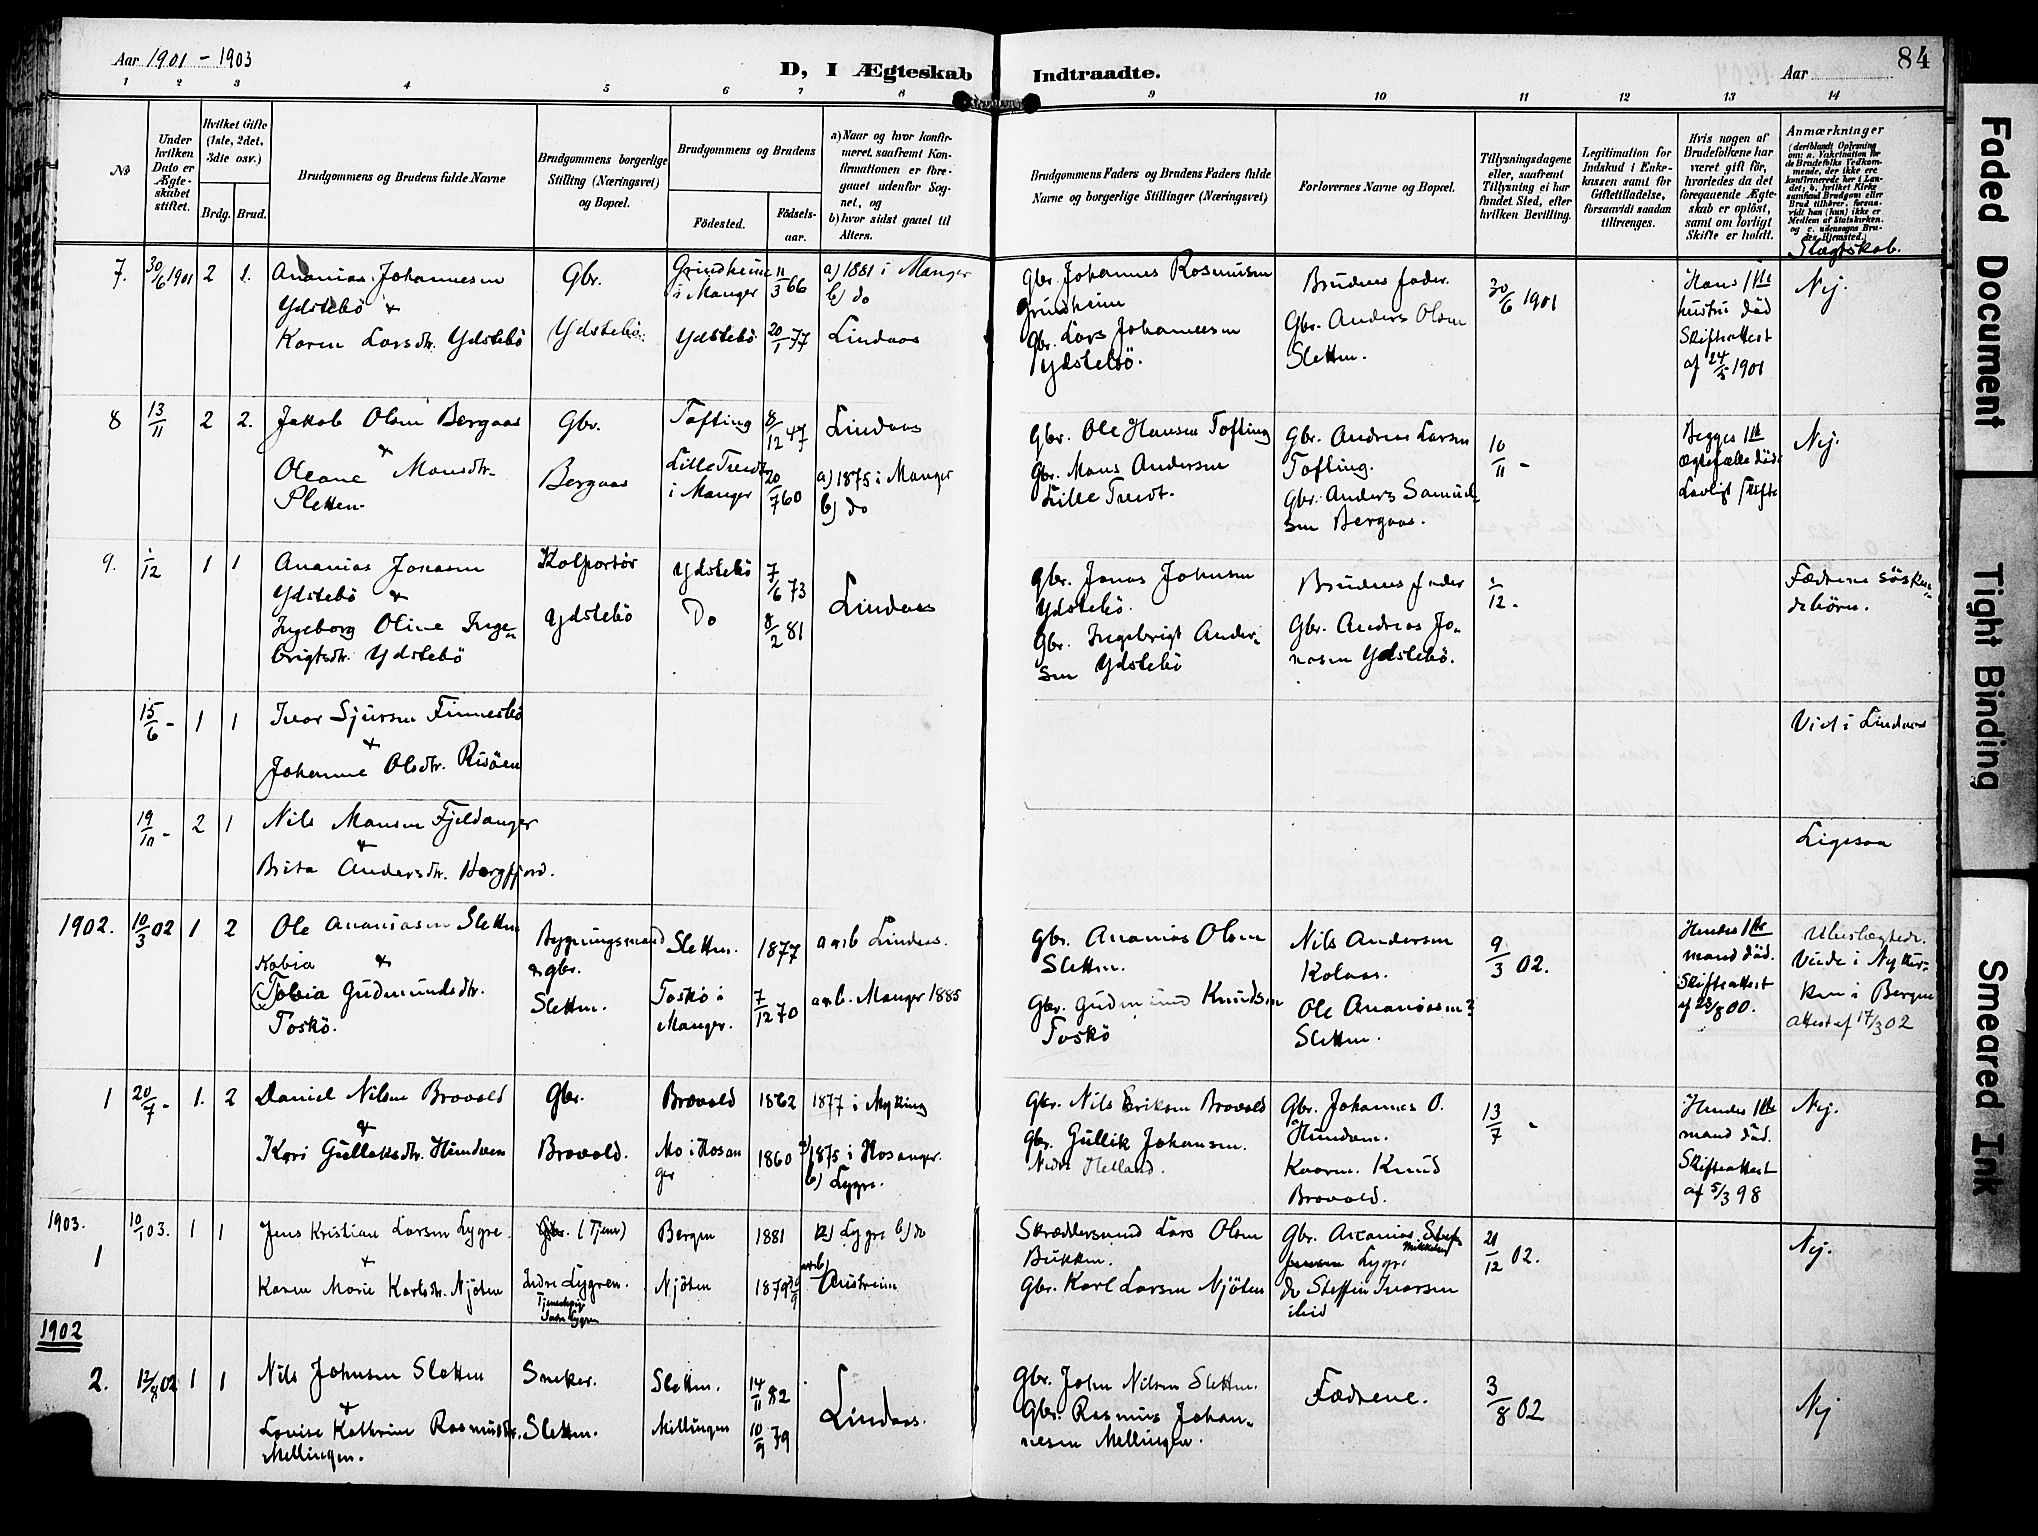 Aar 1901 - 1903
D, I Ægteskab Indtraadte.
Aar
84
1 2 3 4 5 6 7 8 9 10 11 12 13 14
No
Under hvilken Dato er Ægteskabet stiftet.
Hvilket Gifte (1ste, 2det, 3die osv.)
Brdg. Brud.
Brudgommens og Brudens fulde Navne
Brudgommens borgerlige Stilling (Næringsvei) og Bopæl.
Brudgommens og Brudens
Födested.
Födselsaar.
a) Naar og hvor konfirmeret, saafremt Konfirmationen er foregaaet udenfor Sognet, og
b) hvor sidst gaaet til Alters.
Brudgommens Faders og Brudens Faders fulde Navne og borgerlige Stillinger (Næringsvei)
Forlovernes Navne og Bopæl.
Tillysningsdagene eller, saafremt Tillysning ei har fundet Sted, efter hvilken Bevilling.
Legitimation for Indskud i Enkekassen samt for Giftetilladelse, forsaavidt saadan tiltrænges.
Hvis nogen af Brudefolkene har været gift för, hvorledes da det foregaaende Ægteskab er oplöst, samt om lovligt Skifte er holdt.
Anmærkninger
Slægtskab.
7. 30/6 1901 2 1.
Ananias Johannesen
Ydstebö &
Karen Larsdtr. Ydstebö
Gbr.
Ydstebö.
Grindheim
i Manger
11/3 66
Ydstebö 20/1 77
a) 1881 i Manger
b) do
Lindaas
Gbr. Johannes Rasmusen
Grindheim
Gbr. Lars Johannesen
Ydstebö.
Brudens fader.
Gbr. Anders Olsen
Sletten.
30/6 1901
Hans 1ste
hustru död
Skifteattest
af 24/5 1901
Nej.
8 13/11 2 2.
Jakob Olsen Bergaas
&
Oleane Monsdtr.
Sletten
Gbr.
Bergaas
Tofting 8/12 47
Lille Tvedt
i Manger 20/7 60
Lindaas
a) 1875 i Manger
b) do
Gbr. Ole Hansen Tofting
Gbr. Mons Andersen
Lille Tvedt.
Gbr. Andreas Larsen
Tofting.
Gbr. Anders Samuel-
sen Bergaas.
10/11 -
Begges 1ste
Ægtefælle död
Lovligt skifte
Nej.
9. 1/12 1 1
Ananias Jonasen
Ydstebö &
Ingeborg Oline Inge-
brigtsdtr. Ydstebö
Kolportör
Ydstebö
Ydstebö 7/6 73
Do 8/2 81
Lindaas
Gbr. Jonas Johnsen
Ydstebö.
Gbr. Ingebrigt Ander-
sen Ydstebö
Brudens fader
Gbr. Andreas Jo-
nasen Ydstebö.
1/12 -
Fædrene sösken-
debörn.
15/6 - 1 1
Ivar Sjursen Finnesbö
&
Johanne Olsdtr. Risöen
Viet i Lindaas
19/10 - 2 1
Nils Monsen Fjeldanger
&
Brita Andersdtr. Hopfjord.
Ligesaa
1902. 10/3 02 1 2
Ole Ananiasen Sletten
&
Tobia Gudmundsdtr.
Toskö.
Bygningsmand
& gbr.
Sletten.
Sletten. 1877
Toskö i
Manger. 7/12 70
a & b Lindaas.
a & b. Manger 1885
Gbr. Ananias Olsen
Sletten.
Gbr. Gudmund Knudsen
Toskö
Nils Andersen
Kolaas.
Ole Ananiasen
Sletten.
9/3 02.
Hendes 1ste
mand död.
Skifteattest
af 23/8 00.
Ubeslægtede.
Viede i Nykir-
ken i Bergen
attest af 17/3 02
1 20/7 - 1. 2
Daniel Nilsen Brovold
&
Kari Gulleksdtr. Hundven
Gbr.
Brovold.
Brovold 1862
Mo i Hosan
ger 1860
1877 i Myking
a) 1875 i Hosanger.
b) Lygre.
Gbr. Nils Eriksen Brovold
Gbr. Gullik Johansen.
Nedre Hetland.
Gbr. Johannes O.
Hundven.
Kaarm. Knud
Brovold.
13/7 -
Hendes 1ste
mand död.
Skifteattest
af 5/3 98
Nej.
1903. 1 10/1 03. 1 1
Jens Kristian Larsen Lygre.
&
Karen Marie Karlsdtr. Njöten
Gbr. (Tjener)
Indre Lygren.
Tjenestepige
Indre Lygren
Bergen 1881
Njöten 1879
a) Lygre b) do
a & b)
Austrheim
Skræddersvend Lars Olsen
Bukken.
Gbr. Karl Larsen Njöten
Gbr. Ananias
Mikkelsen
Lygre
do Steffen Ivarsen
ibid
21/12 02.
Nej.
1902
2. 12/8 02 1 1
Nils Johnsen Sletten
&
Louise Kathrine Rasmusdtr.
Mellingen.
Sneker.
Sletten.
Sletten. 14/11 82
Mellingen 10/9 79
Lindaas.
Gbr. John Nilsen Sletten.
Gbr. Rasmus Johan-
nesen Mellingen.
Fædrene.
3/8 02
Nej
Faded Document
Tight Binding
Smeared Ink